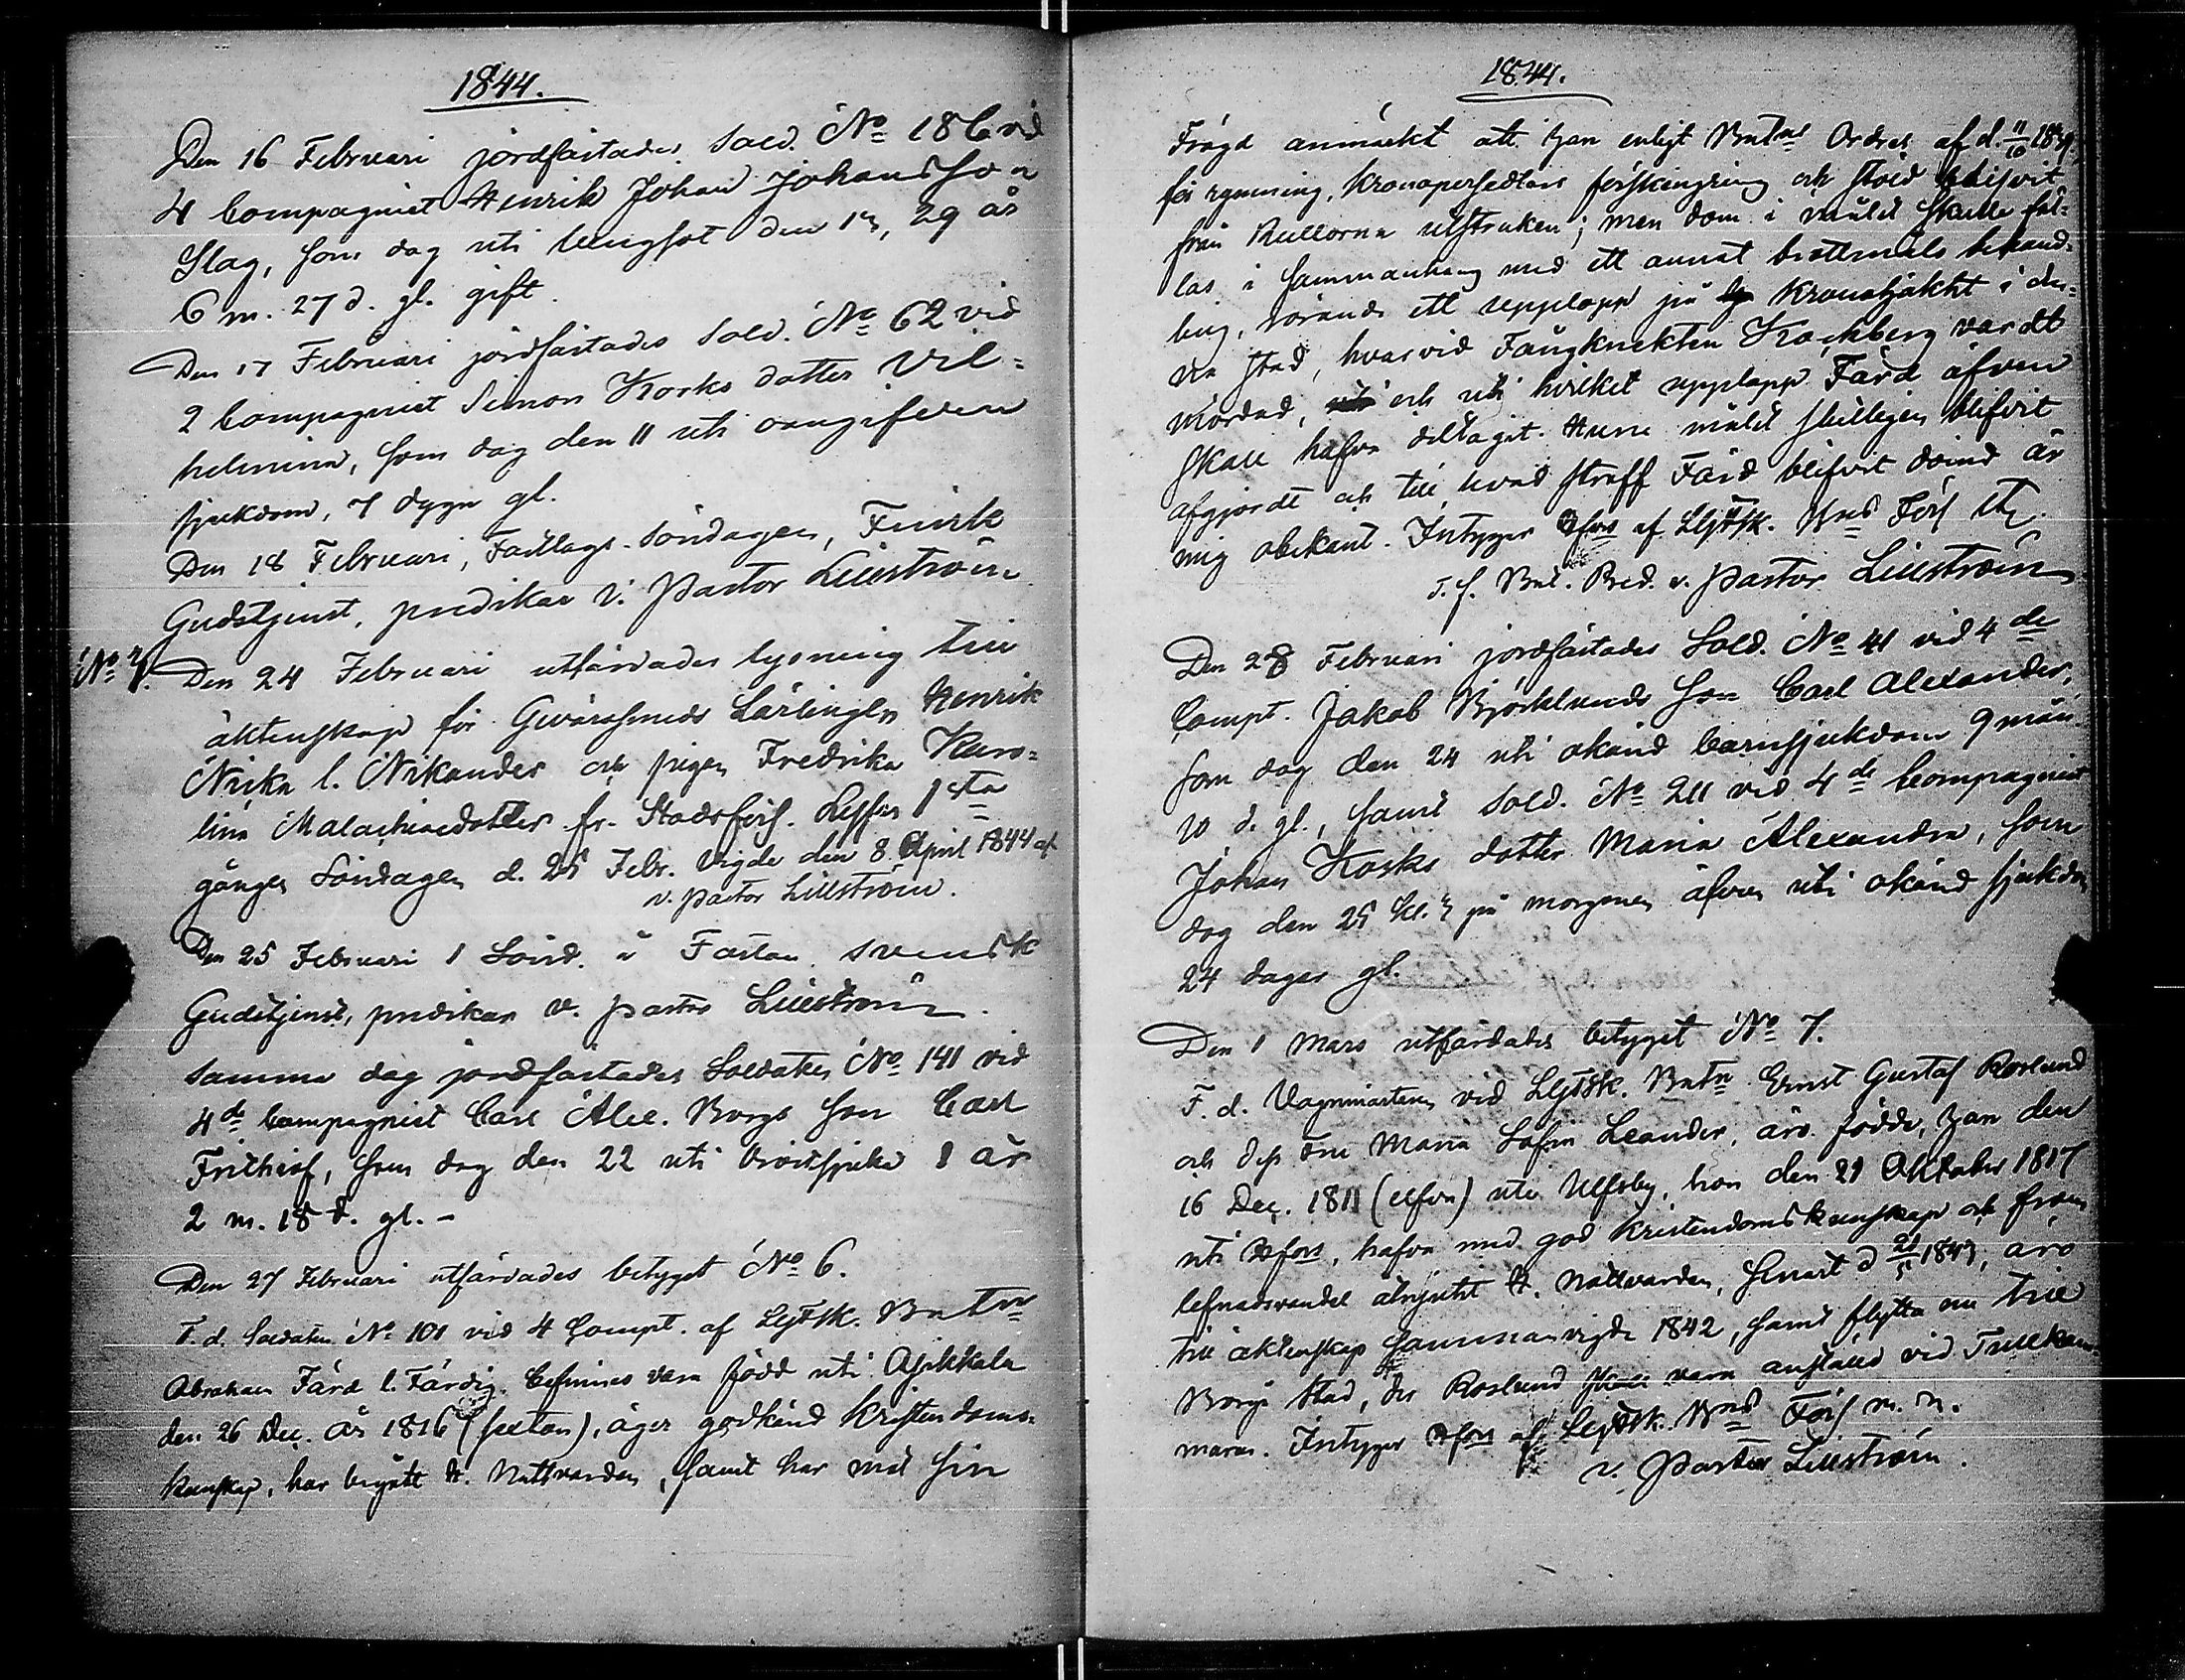 1844.
Den 16 Februari jordfästades Sold. No 186 vid
4 Compagniet Henrik Johan Johansson
Slag, som dog uti lungsot den 13, 29 år
6 m. 27 d. gl. gift.
Den 17 Februari jordfästades Sold. No 62 vid
2 Compagniet Simon Korks dotter Vil=
helmina, som dog den 11 uti oangifven
sjukdom, 7 dygn gl.
Den 18 Februari, Fastlags-Söndagen, Finsk
Gudstjenst, predikar v. Pastor Lillström
No 4. Den 24 Februari utfärdades lysning till
äktenskap för Gevärssmeds Lärlingen Henrik
Nirka l. Nikander och pigan Fredrika Karo=
lina Malachiasdotter fr. Stadsförs. Hfors 1sta
gången Söndagen d. 25 Febr. Vigde den 8 April 1844 af
v. Pastor Lillström.
Den 25 Februari 1 Sönd. i Fastan svensk
Gudstjenst, predikar v. Pastor Lillström.
Samma dag jordfästades Soldaten No 141 vid
4de Compagniet Carl Alex. Borgs son Carl
Frithiof, som dog den 22 uti bröstsjuka 1 år
2 m. 18 d. gl. -
Den 27 Februari utfärdades betyget No 6.
F. d. Soldaten No 101 vid 4 Compt. af Lfgtsk. Batn
Abraham Färd l. Färdig befinnes vara född uti Asikkala
den 26 Dec. år 1816 (sexton), äger godkänd Kristendoms=
kunskap, har begått H. Nattvarden, samt har vid sin
1844.
Frägd anmärkt att han enligt Batns Ordres af d. 11/10 1839,
för rymning, Kronopersedlars förskingring och stöld blifvit
från Rullorna utstruken; men dom i målet skulle fäl=
las i sammanhang med ett annat brottmåls behand=
ling, rörande ett upplopp på Kronohäktet i den=
na stad, hvarvid Fångknekten Krockberg vardt
mördad, och uti hvilket upplopp Färd äfven
skall hafva deltagit. Hurue målet slutligen blifvit
afgjordt och till hvad straff Färd blifvit dömd är
mig obekant. Intygar Hfors af Lfgtsk. Bns Förs etc.
T. f. Bat. Pred. v. Pastor Lillström
Den 28 Februari jordfästades Sold. No 41 vid 4de
Compt. Jakob Björklunds son Carl Alexander,
som dog den 24 uti okänd barnsjukdom 9 mån.
10 d. gl., samt Sold. No 211 vid 4de Compagniet
Johan Korks dotter Maria Alexandra, som
dog den 25 kl. 3 på morgonen äfven uti okänd sjukdom
24 dagar gl.
Den 1 Mars utfärdades betyget No 7.
F. d. Vagnmästaren vid Lfgtsk. Batn Ernst Gustaf Roslund
och dess Fru Maria Sofia Leander, äro födde, han den
16 Dec. 1811 (elfva) uti Ulfsby, hon den 21 Oktober 1817
uti Hfors, hafva med god Kristendomskunskap och from
lefnadsvandel åtnjutit H. Nattvarden, senast d 21/5 1843, äro
till äktenskap sammanvigde 1842, samt flytta nu till
Borgå Stad, der Roslund skall vara anställd vid Tullkam=
maren. Intygar Hfors af Lfgtsk. Bns Förs m. m.
v. Pastor Lillström.